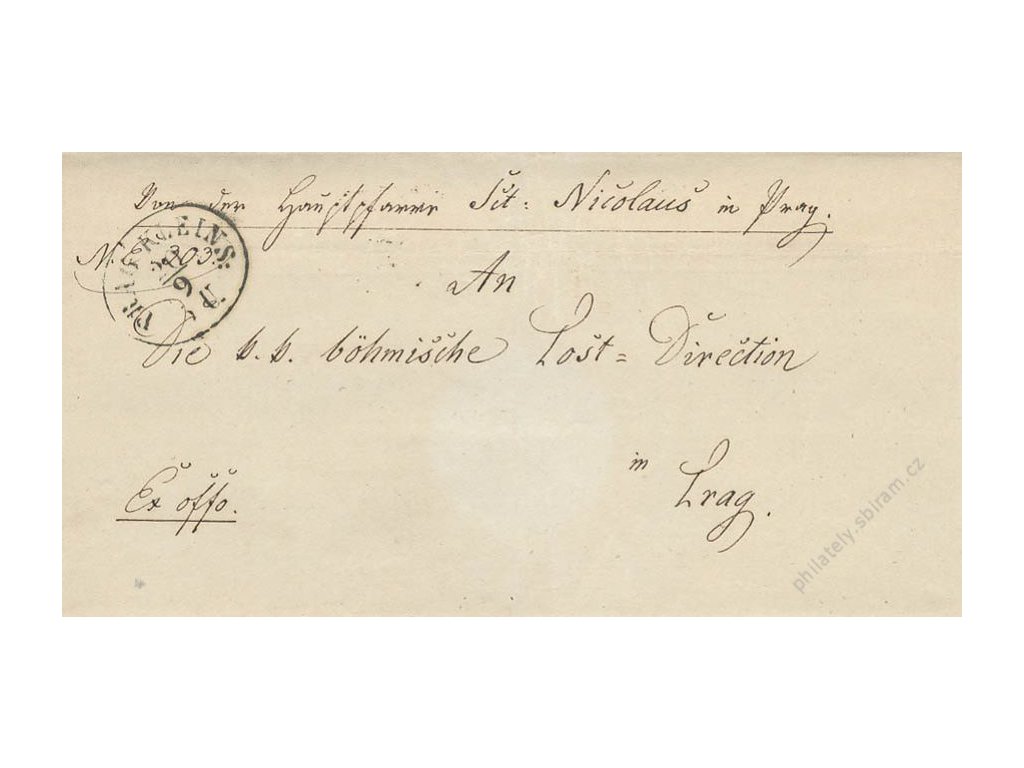 Von der Hauptpfarre Sct: Nicolaus in Prag.
PRAG KLEINS:
N. E. 303.
20/6
An
Die k. k. böhmische Post = Direction
in
Prag.
Ex offo.
philately.sbiram.cz